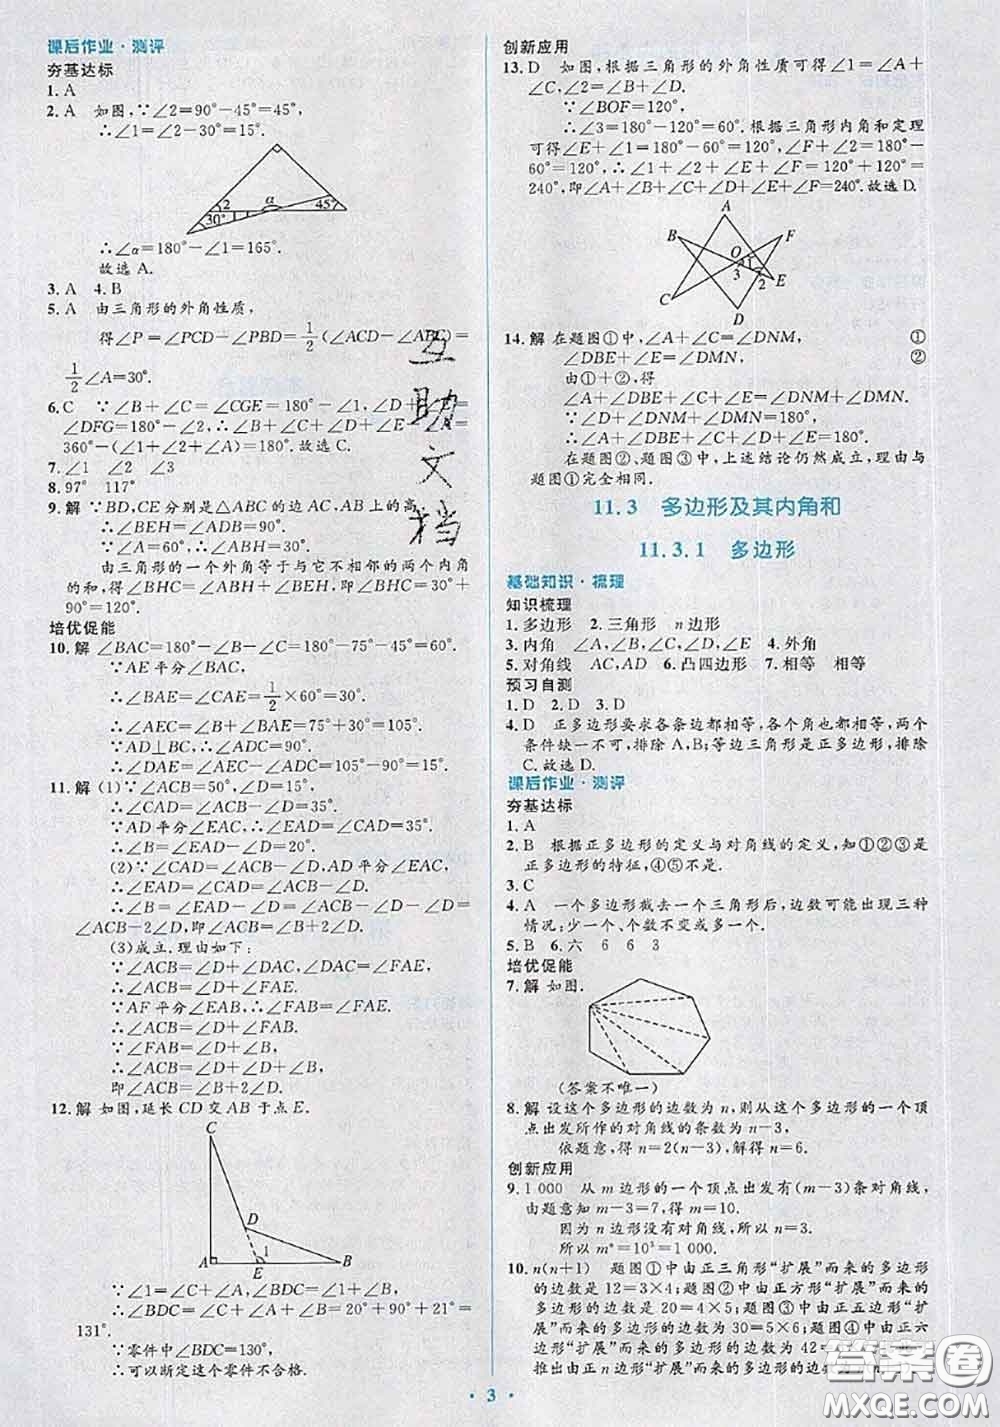 课后作业·测评
夯基达标
1. A
2. A 如图,∵∠2=90°-45°=45°,
∴∠1=∠2-30°=15°.
2 α 45°
30° 1
∴∠α=180°-∠1=165°.
故选 A.
3. A 4. B
5. A 由三角形的外角性质,
得∠P=∠PCD-∠PBD=1/2(∠ACD-∠ABC)=
1/2∠A=30°.
6. C ∵∠B+∠C=∠CGE=180°-∠1,∠D+∠E=
∠DFG=180°-∠2,∴∠B+∠C+∠D+∠E+∠A=
360°-(∠1+∠2+∠A)=180°.故选 C.
7. ∠1 ∠2 ∠3
8. 97° 117°
9. 解 ∵BD,CE分别是△ABC的边AC,AB上的高,
∴∠BEH=∠ADB=90°.
∵∠A=60°,∴∠ABH=30°.
由三角形的一个外角等于与它不相邻的两个内角
的和,得∠BHC=∠ABH+∠BEH=30°+
90°=120°.
培优促能
10. 解 ∠BAC=180°-∠B-∠C=180°-75°-45°=60°.
∵AE平分∠BAC,
∴∠BAE=∠CAE=1/2×60°=30°.
∴∠AEC=∠B+∠BAE=75°+30°=105°.
∵AD⊥BC,∴∠ADE=90°.
∴∠DAE=∠AEC-∠ADE=105°-90°=15°.
11. 解 (1)∵∠ACB=50°,∠D=15°,
∴∠CAD=∠ACB-∠D=35°.
∵AD平分∠EAC,∴∠EAD=∠CAD=35°.
∴∠B=∠EAD-∠D=20°.
(2)∵∠CAD=∠ACB-∠D,AD平分∠EAC,
∴∠EAD=∠CAD=∠ACB-∠D.
∴∠B=∠EAD-∠D=∠ACB-∠D-∠D=
∠ACB-2∠D,即∠ACB=∠B+2∠D.
(3)成立.理由如下:
∵∠ACB=∠D+∠DAC,∠DAC=∠FAE,
∴∠ACB=∠D+∠FAE.
∵AD平分∠CAE,∴∠FAB=∠FAE.
∴∠ACB=∠D+∠FAB.
∵∠FAB=∠D+∠B,
∴∠ACB=∠D+∠D+∠B,
即∠ACB=∠B+2∠D.
12. 解 如图,延长CD交AB于点E.
C
D
1
A E B
∵∠1=∠C+∠A,∠BDC=∠1+∠B,
∴∠BDC=∠C+∠A+∠B=20°+90°+21°=
131°.
∵零件中∠BDC=130°,
∴可以断定这个零件不合格.
创新应用
13. D 如图,根据三角形的外角性质可得∠1=∠A+
∠C,∠2=∠B+∠D.
∵∠BOF=120°,
∴∠3=180°-120°=60°.根据三角形内角和定理
可得∠E+∠1=180°-60°=120°,∠F+∠2=180°-
60°=120°,∴∠1+∠2+∠E+∠F=120°+120°=
240°,即∠A+∠B+∠C+∠D+∠E+∠F=240°.故选 D.
A
B F
O 1
3 2
C E
D
14. 解 在题图①中,∠A+∠C=∠DNM, ①
∠DBE+∠E=∠DMN, ②
由①+②,得
∠A+∠DBE+∠C+∠E=∠DNM+∠DMN.
∵∠D+∠DNM+∠DMN=180°,
∴∠A+∠DBE+∠C+∠D+∠E=180°.
在题图②、题图③中,上述结论仍然成立,理由与
与题图①完全相同.
11.3 多边形及其内角和
11.3.1 多边形
基础知识·梳理
知识梳理
1. 多边形 2. 三角形 n边形
3. 内角 ∠A,∠B,∠C,∠D,∠E 4. 外角
5. 对角线 AC,AD 6. 凸四边形 7. 相等 相等
预习自测
1. D 2. D 3. D
4. D 正多边形要求各条边都相等,各个角也都相等,两个
条件缺一不可,排除A,B;等边三角形是正多边形,排除
C.故选 D.
课后作业·测评
夯基达标
1. A
2. B 根据正多边形的定义与对角线的定义,知①②③是
正多边形的特征,④⑤不是.
3. C
4. A 一个多边形截去一个三角形后,边数可能出现三种
情况:少一个、个数不变或多一个.
5. B 6. 六 6 6 3
培优促能
7. 解 如图.
(答案不唯一)
8. 解 设这个多边形的边数为n,则从这个多边形的一个顶
点出发所作的对角线的条数为n-3,
依题意,得n=2(n-3),解得n=6.
创新应用
9. 1 000 从m边形的一个顶点出发有(m-3)条对角线,
由题意知m-3=7,得m=10.
因为n边形没有对角线,所以n=3.
所以mⁿ=10³=1 000.
10. n(n+1) 题图①中由正三角形“扩展”而来的多边形
的边数是12=3×4;题图②中由正方形“扩展”而来的
多边形的边数是20=4×5;题图③中由正五边形“扩
展”而来的多边形的边数为30=5×6;题图④中由正
六边形“扩展”而来的多边形的边数为42=
推出由正n边形“扩展”而来的多边形的边数为
互助文档
· 3 ·
答案圈
MXQE.COM